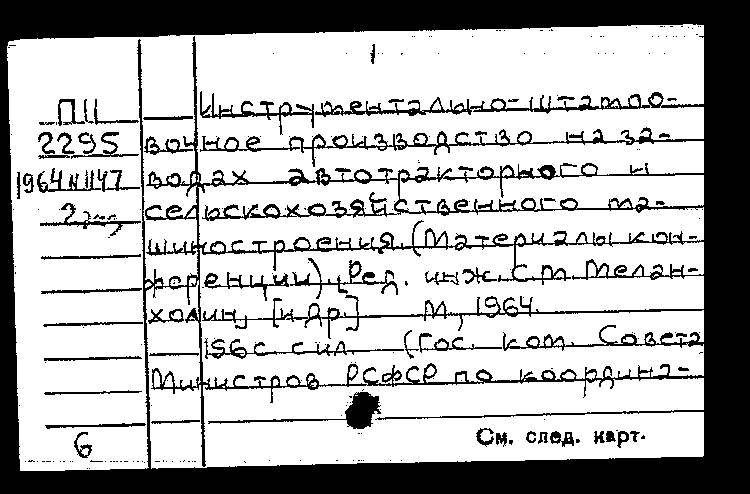 1
П11
2295
1964 N 1147
2 экз
Инструментально-штампо-
вочное производство на за-
водах автотракторного и
сельскохозяйственного ма-
шиностроения. (Материалы кон-
ференции). [Ред. инж. С.М. Мелан-
холин, [и др.] М, 1964.
196 с с ил. (Гос. ком. Совета
Министров РСФСР по координа-
6
См. след. карт.